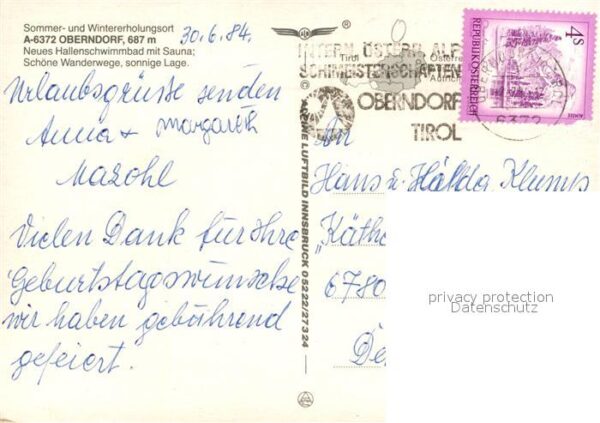 Sommer- und Wintererholungsort
A-6372 OBERNDORF, 687 m
Neues Hallenschwimmbad mit Sauna;
Schöne Wanderwege, sonnige Lage.
30.6.84.
Urlaubsgrüsse senden
Anna + Margareth
Marohl
Vielen Dank für Ihre
Geburtstagswünsche
wir haben gebührend
gefeiert.
ALPINE LUFTBILD INNSBRUCK 05222/27324
INTERN. ÖSTERR. ALPI
SCHIMEISTERSCHAFTEN
Tirol
OBERNDORF
TIROL
4S
REPUBLIK ÖSTERREICH
6372
An
Hans u. Hälda Klumps
"Käth
6780
De
privacy protection
Datenschutz